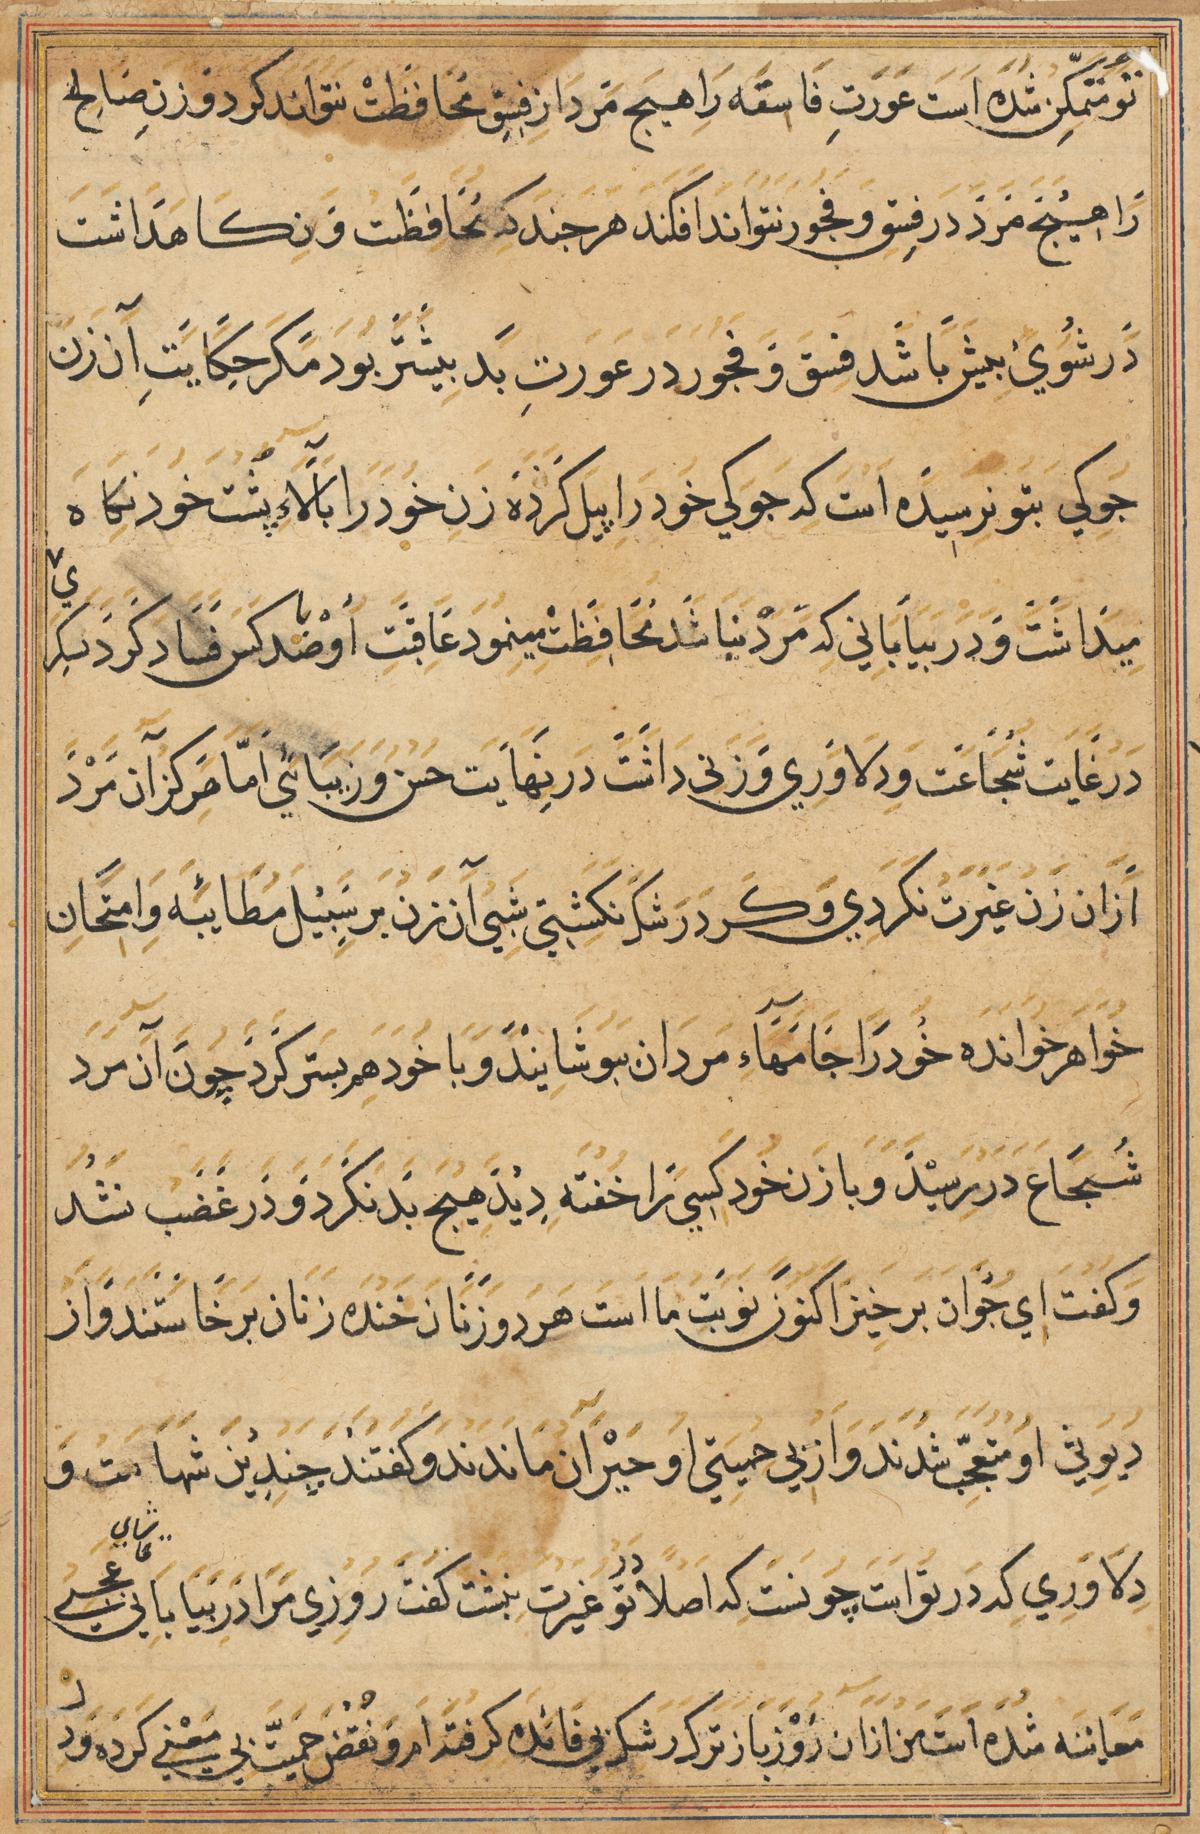 تو متمکّن شده است عورتِ فاسقه را هیج مرد از فسقِ محافظتْ نتواند کرد و زنِ صالح
را هیج مرد در فسق و فجور نتواند افکند هر جند که محافظت و نکاهداشت
در شوی بیش باشد فسق و فجور در عورتِ بد بیشتر بود مکر حکایتِ آن زن
جوکی بتو نرسیده است که جوکی خود را پیل کرده زنِ خود را بالاءِ پشت خود نکاه
میداشت و در بیابانی که مرد نباشد محافظت مینمود عاقبت او با صد کس فساد کرد
در غایت شجاعت و دلاوری و زنی داشت در نهایت حسن و زیبائی امّا هرکز آن مرد
از آن زن غیرت نکردی و کرد رشک نکشتی شبی آن زن بر سبیل مطایبه و امتحان
خواهر خوانده خود را جامهاء مردان بپوشانید و با خود هم بستر کرد چون آن مرد
شجاع در رسید و با زن خود کسی را خفته دید هیج بد نکرد و در غضب نشد
و کفت ای جوان بر خیز اکنون نوبت ما است هر دو زنان خنده زنان بر خاستند و از
دیوثی او متعجّب شدند و از بی حمیتی او حیران ماندند و کفتند چندین شهامت و
دلاوری که در تو است چونست که اصلا در تو غیرت نیست کفت روزی مرا در بیابانی عجبی
معاینه شده است من از آن روز باز ترک رشک بی فائده کرفته ام و نقض حمیّت بی معنی کرده و در